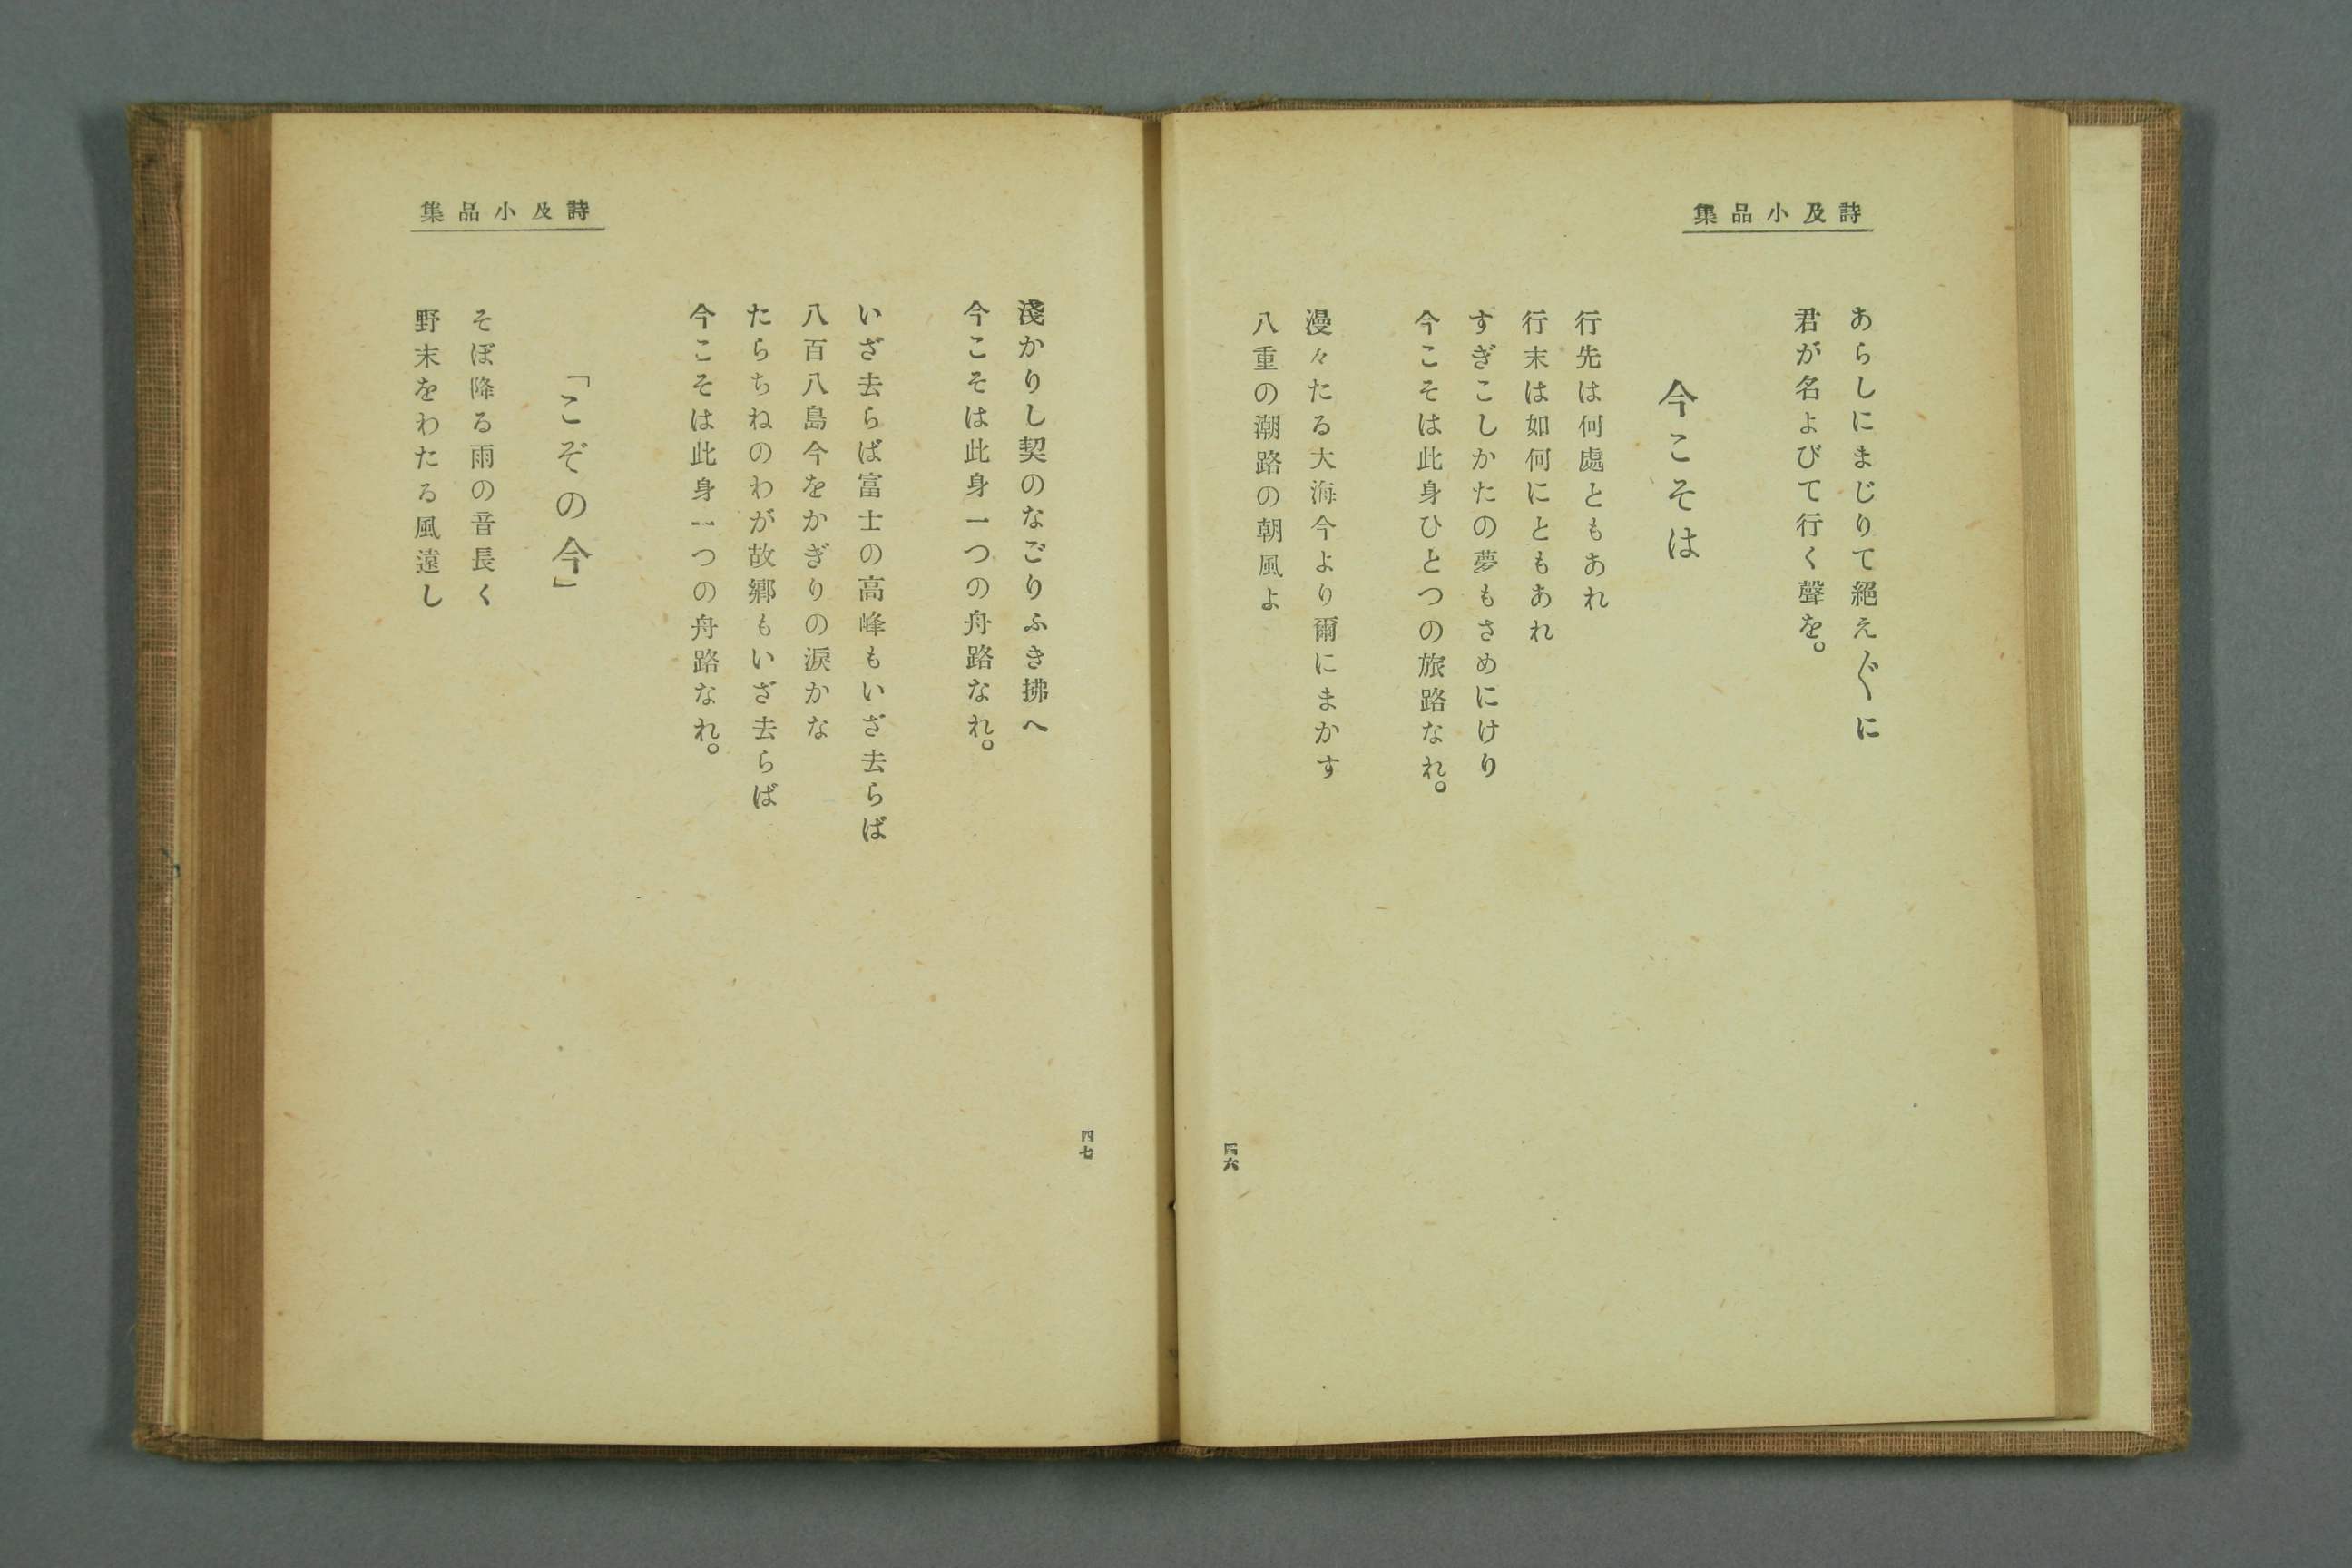 詩及小品集
あらしにまじりて絕え〴〵に
君が名よびて行く聲を。
今こそは
行先は何處ともあれ
行末は如何にともあれ
すぎこしかたの夢もさめにけり
今こそは此身ひとつの旅路なれ。
漫々たる大海今より爾にまかす
八重の潮路の朝風よ
四六
詩及小品集
淺かりし契のなごりふき拂へ
今こそは此身一つの舟路なれ。
いざ去らば富士の高峰もいざ去らば
八百八島今をかぎりの淚かな
たらちねのわが故鄕もいざ去らば
今こそは此身一つの舟路なれ。
「こぞの今」
そぼ降る雨の音長く
野末をわたる風遠し
四七